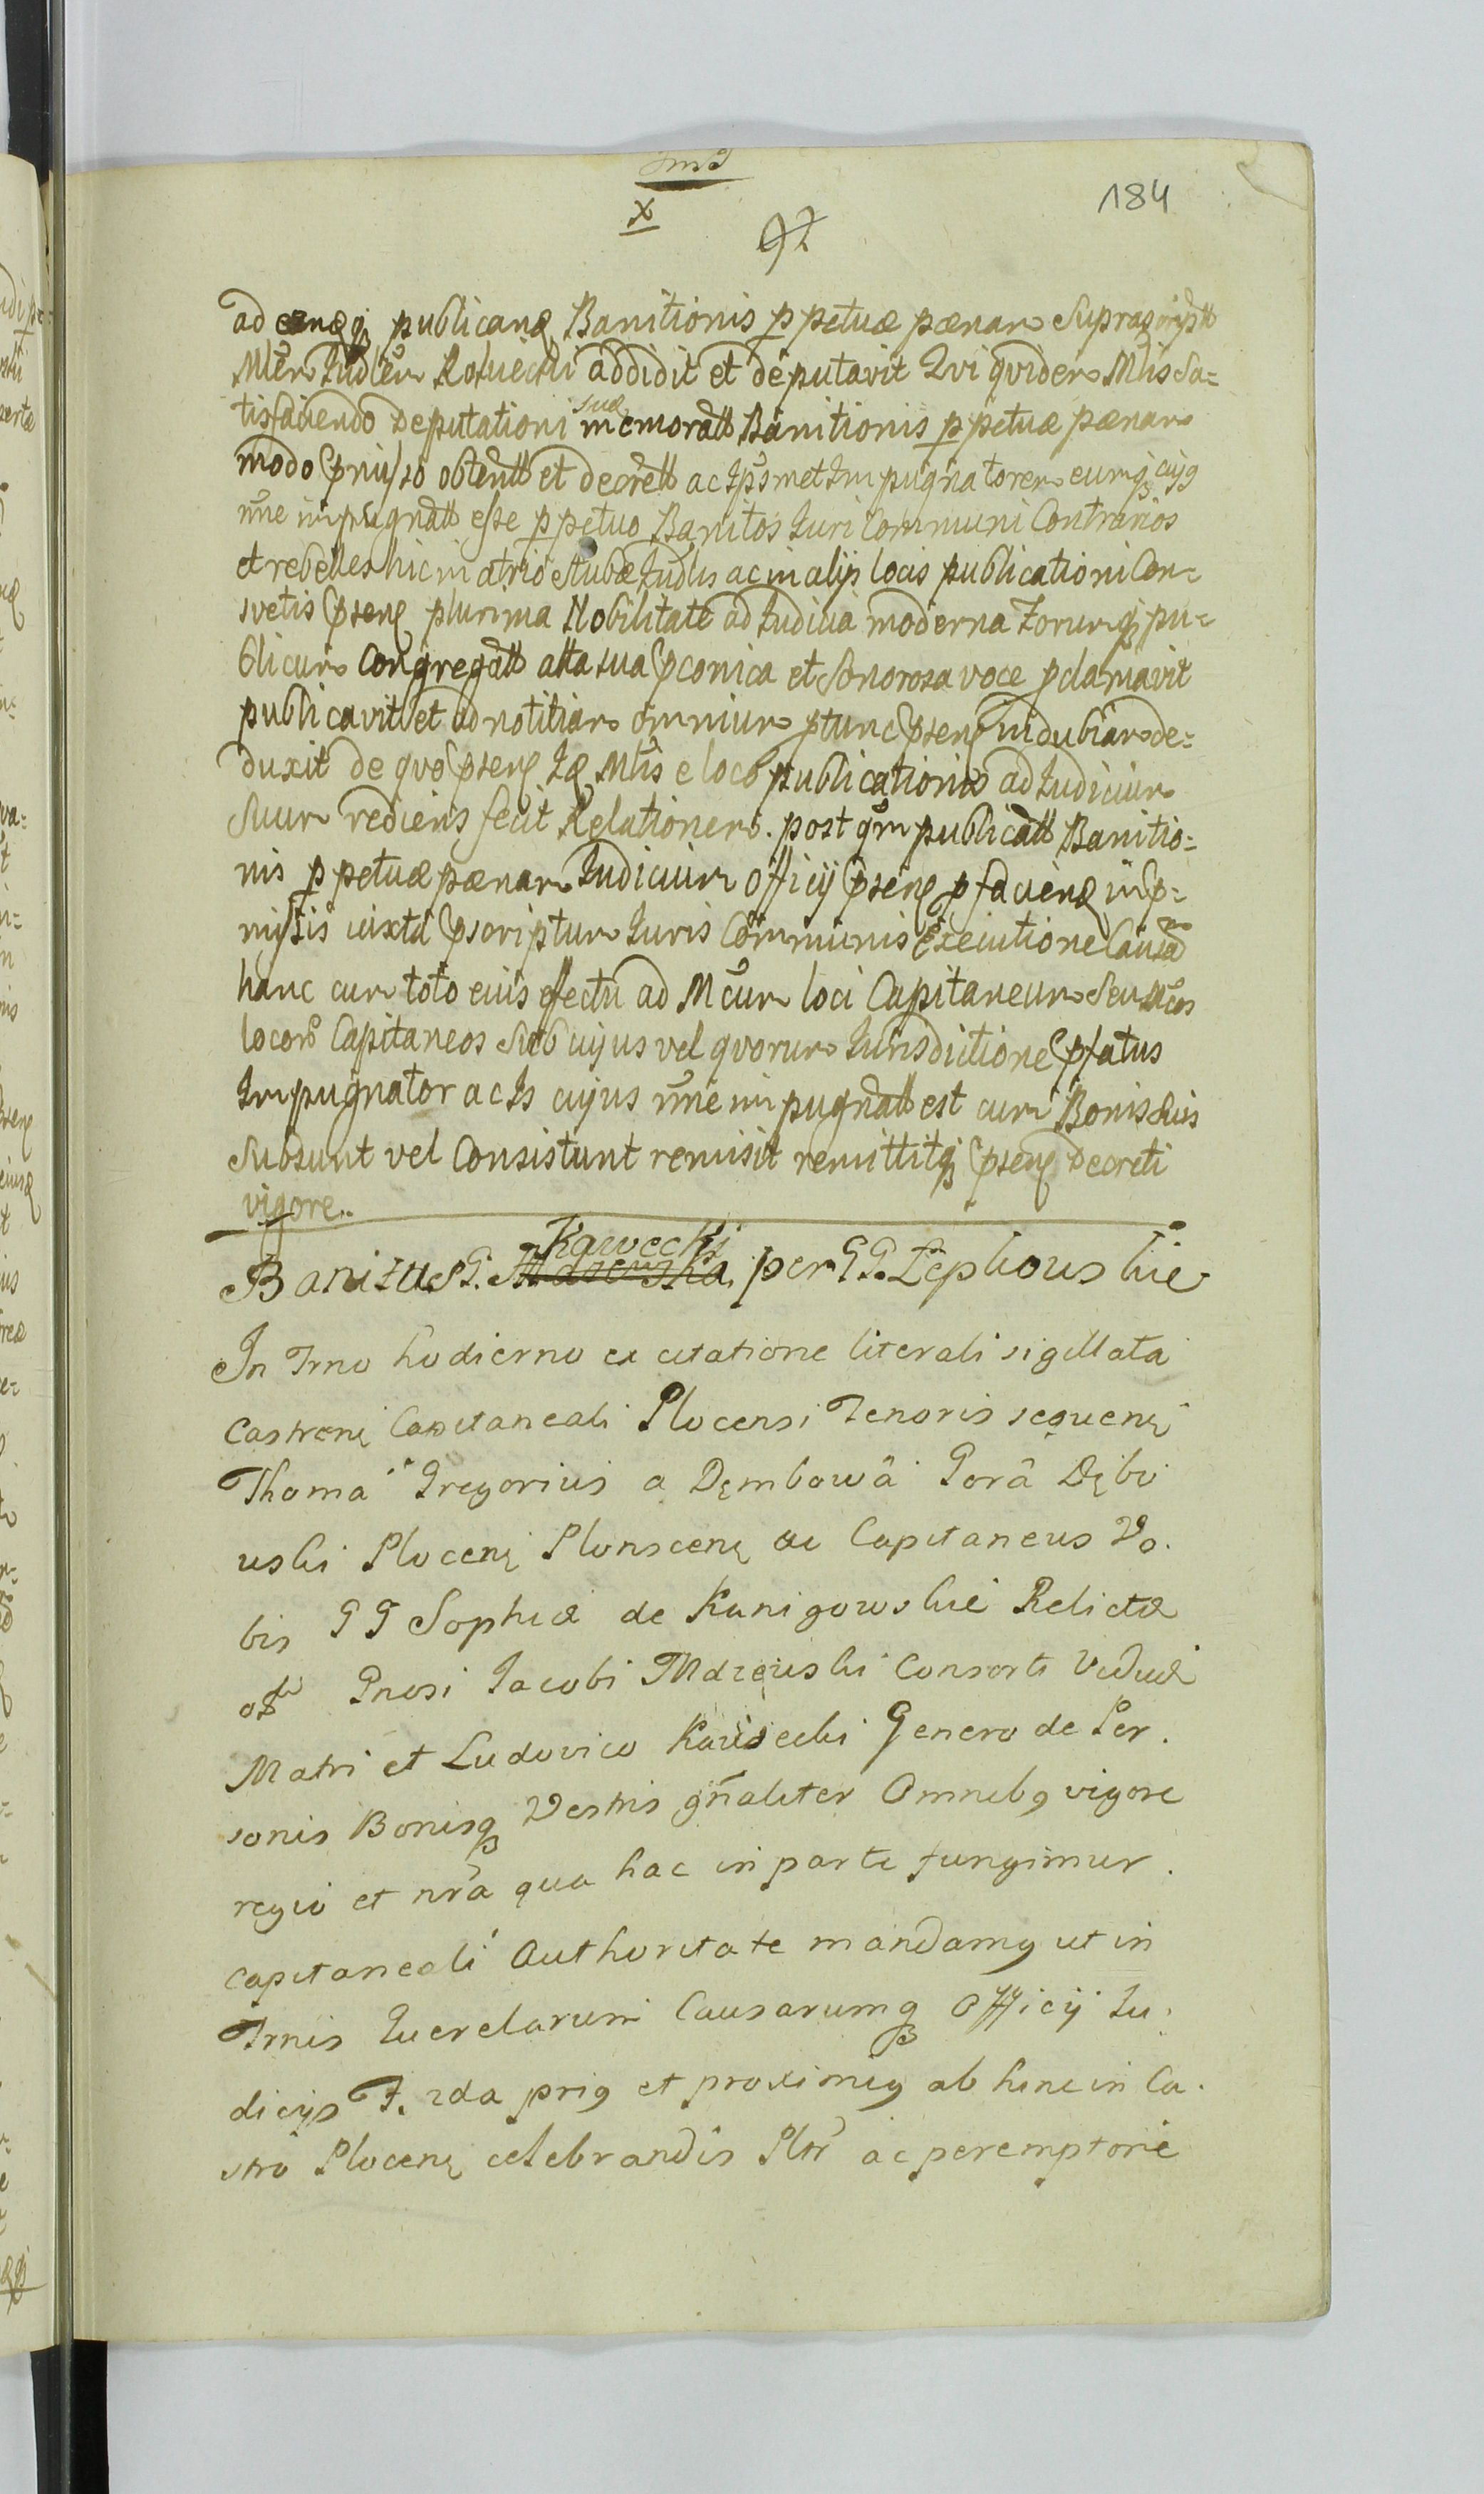 184
X
92
ad eanqȝ publicaną Banitionis ppetuæ pænam Suprascriptt
Mlem Iudlem Rosuecki addidit et deputavit Qvi qvidem Mlis Sa=
tisfaciendo Deputationi suæ memoratt Banitionis ppetuæ pænam
modo pmisso obtentt et decrett ac Ipsmet Impugnatorem eumqȝ cujg
nne impugnatt esse ppetuo Banitos Iuri Communi Contrarios
et rebelles hic in atrio Stubæ Iudlis ac in alijs locis publicationi Con=
svetis psenę plurima Nobilitate ad Iudicia moderna Forumqȝ pu=
blicum Congregatt alta sua pconica et Sonorosa voce pclamavit
publicavit et ad notitiam omnium ptunc psenę indubiam de=
duxit de qvo psenę Ię Mlis e loco publicationis ad Iudicium
Suum rediens fecit Relationem. post qm publicatt Banitio=
nis ppetuæ pænam Iudicium officij psenę pfacienę in p=
missis iuxta pscriptum Iuris Communis Executione Causa
hanc cum toto eius effectu ad Mcum loci Capitaneum Seu Mcos
locor Capitaneos Sub cujus vel qvorum Iurisdictione pfatus
Impugnator ac Is cujus nne impugnatt est cum Bonis Suis
Subsunt vel Consistunt remisit remittitqȝ psenę Decreti
vigore.
Banitus G. Mdzewska Kawecki per GG. Zephowskie
In Trno hodierno ex citatione literali sigillata
Castrenę Capitaneali Plocensi Tenoris sequenę
Thoma Gregorius a Dęmbowâ Gorâ Dębo
wski Plocenę Plonscenę ac Capitaneus Vo.
bis GG Sophiæ de Kanigowskie Relictæ
oł Gnosi Iacobi Mdzewski Consorti Viduæ
Matri et Ludovico Kawecki Genero de Per.
sonis Bonisqȝ Vestris gnaliter Omnibg vigore
regio et nra qua hac in parte fungimur.
Capitaneali Authoritate mandamg ut in
Trnis Querelarum Causarumqȝ Officij Iu.
dicijs F. 2da prig et proximig ab hinc in Ca.
stro Plocenę celebrandis Pltr ac peremptorie